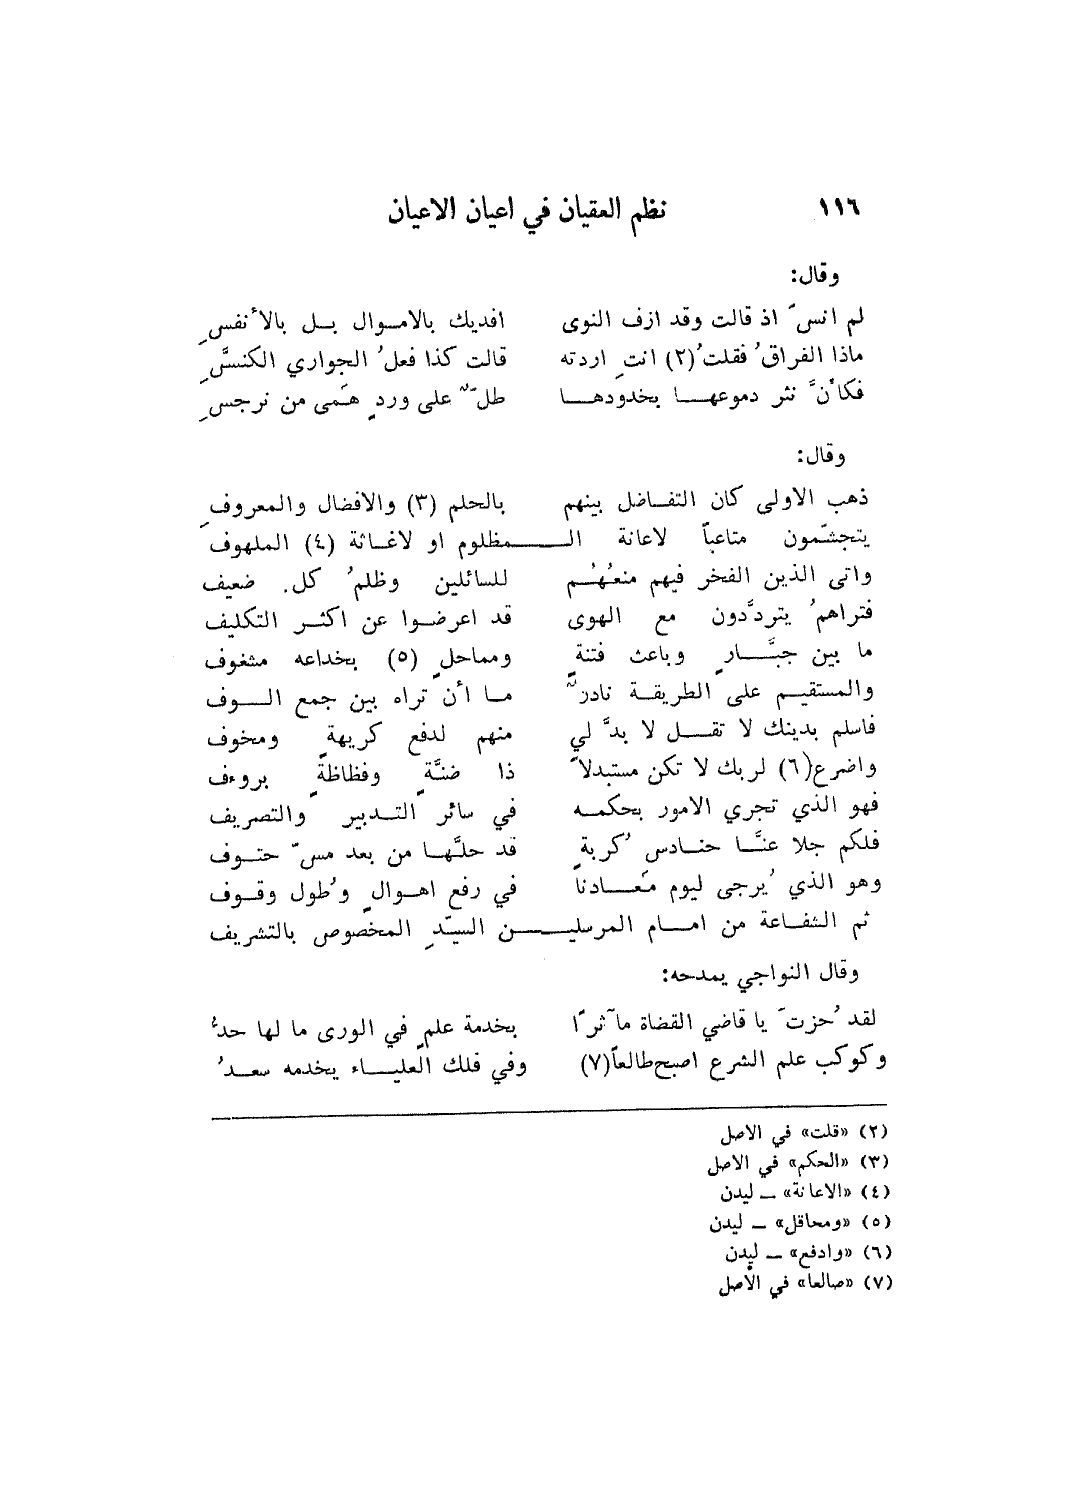 ١١٦ نظم العقيان في اعيان الاعيان
وقال:
لم انسَ اذ قالت وقد ازف النوى افديك بالاموال بل بالأنفسِ
ماذا الفراقُ فقلتُ (٢) انتِ اردته قالت كذا فعلُ الجواري الكنسَّ
فكأنَّ نثر دموعها بخدودها طلٌّ على وردٍ هَمى من نرجسِ
وقال:
ذهب الاولى كان التفاضل بينهم بالحلم (٣) والافضال والمعروفِ
يتجشّمون متاعباً لاعانة المظلوم او لاغاثة (٤) الملهوف
واتى الذين الفخر فيهم منعُهُم للسائلين وظلمُ كل ضعيف
فتراهمُ يتردَّدون مع الهوى قد اعرضوا عن اكثر التكليف
ما بين جبَّارٍ وباعث فتنةٍ ومماحلٍ (٥) بخداعه مشغوف
والمستقيم على الطريقة نادرٌ ما أن تراه بين جمع الوف
فاسلم بدينك لا تقل لا بدَّ لي منهم لدفع كريهةٍ ومخوف
واضرع (٦) لربك لا تكن مستبدلاً ذا ضنَّةٍ وفظاظةٍ بروءف
فهو الذي تجري الامور بحكمه في سائر التدبير والتصريف
فلكم جلا عنَّا حنادس كُربةٍ قد حلَّها من بعد مسّ حتوف
وهو الذي يُرجى ليوم مَعادنا في رفع اهوالٍ وطُول وقوف
ثم الشفاعة من امام المرسلين السيّدِ المخصوص بالتشريف
وقال النواجي يمدحه:
لقد حُزتَ يا قاضي القضاة مآثرًا بخدمة علمٍ في الورى ما لها حدُّ
وكوكب علم الشرع اصبح طالعاً (٧) وفي فلك العلياء يخدمه سعدُ
(٢) «قلت» في الاصل
(٣) «الحكم» في الاصل
(٤) «الاعانة» ــ ليدن
(٥) «ومحاقل» ــ ليدن
(٦) «وادفع» ــ ليدن
(٧) «صالعا» في الأصل